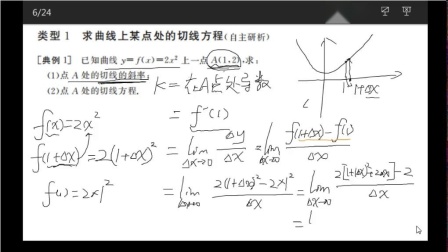 6/24
类型 1 求曲线上某点处的切线方程(自主研析)
[典例1] 已知曲线 y=f(x)=2x² 上一点 A(1,2),求:
(1)点 A 处的切线的斜率;
(2)点 A 处的切线方程.
K=在A点处导数
= f'(1)
f(x)=2x²
f(1+Δx)=2(1+Δx)²
f(1)=2×1²
= lim Δx→0 Δy/Δx = lim Δx→0 (f(1+Δx)-f(1))/Δx
= lim Δx→0 (2(1+Δx)²-2×1²)/Δx = lim Δx→0 (2[1+(Δx)²+2Δx]-2)/Δx
= l
1 1+Δx